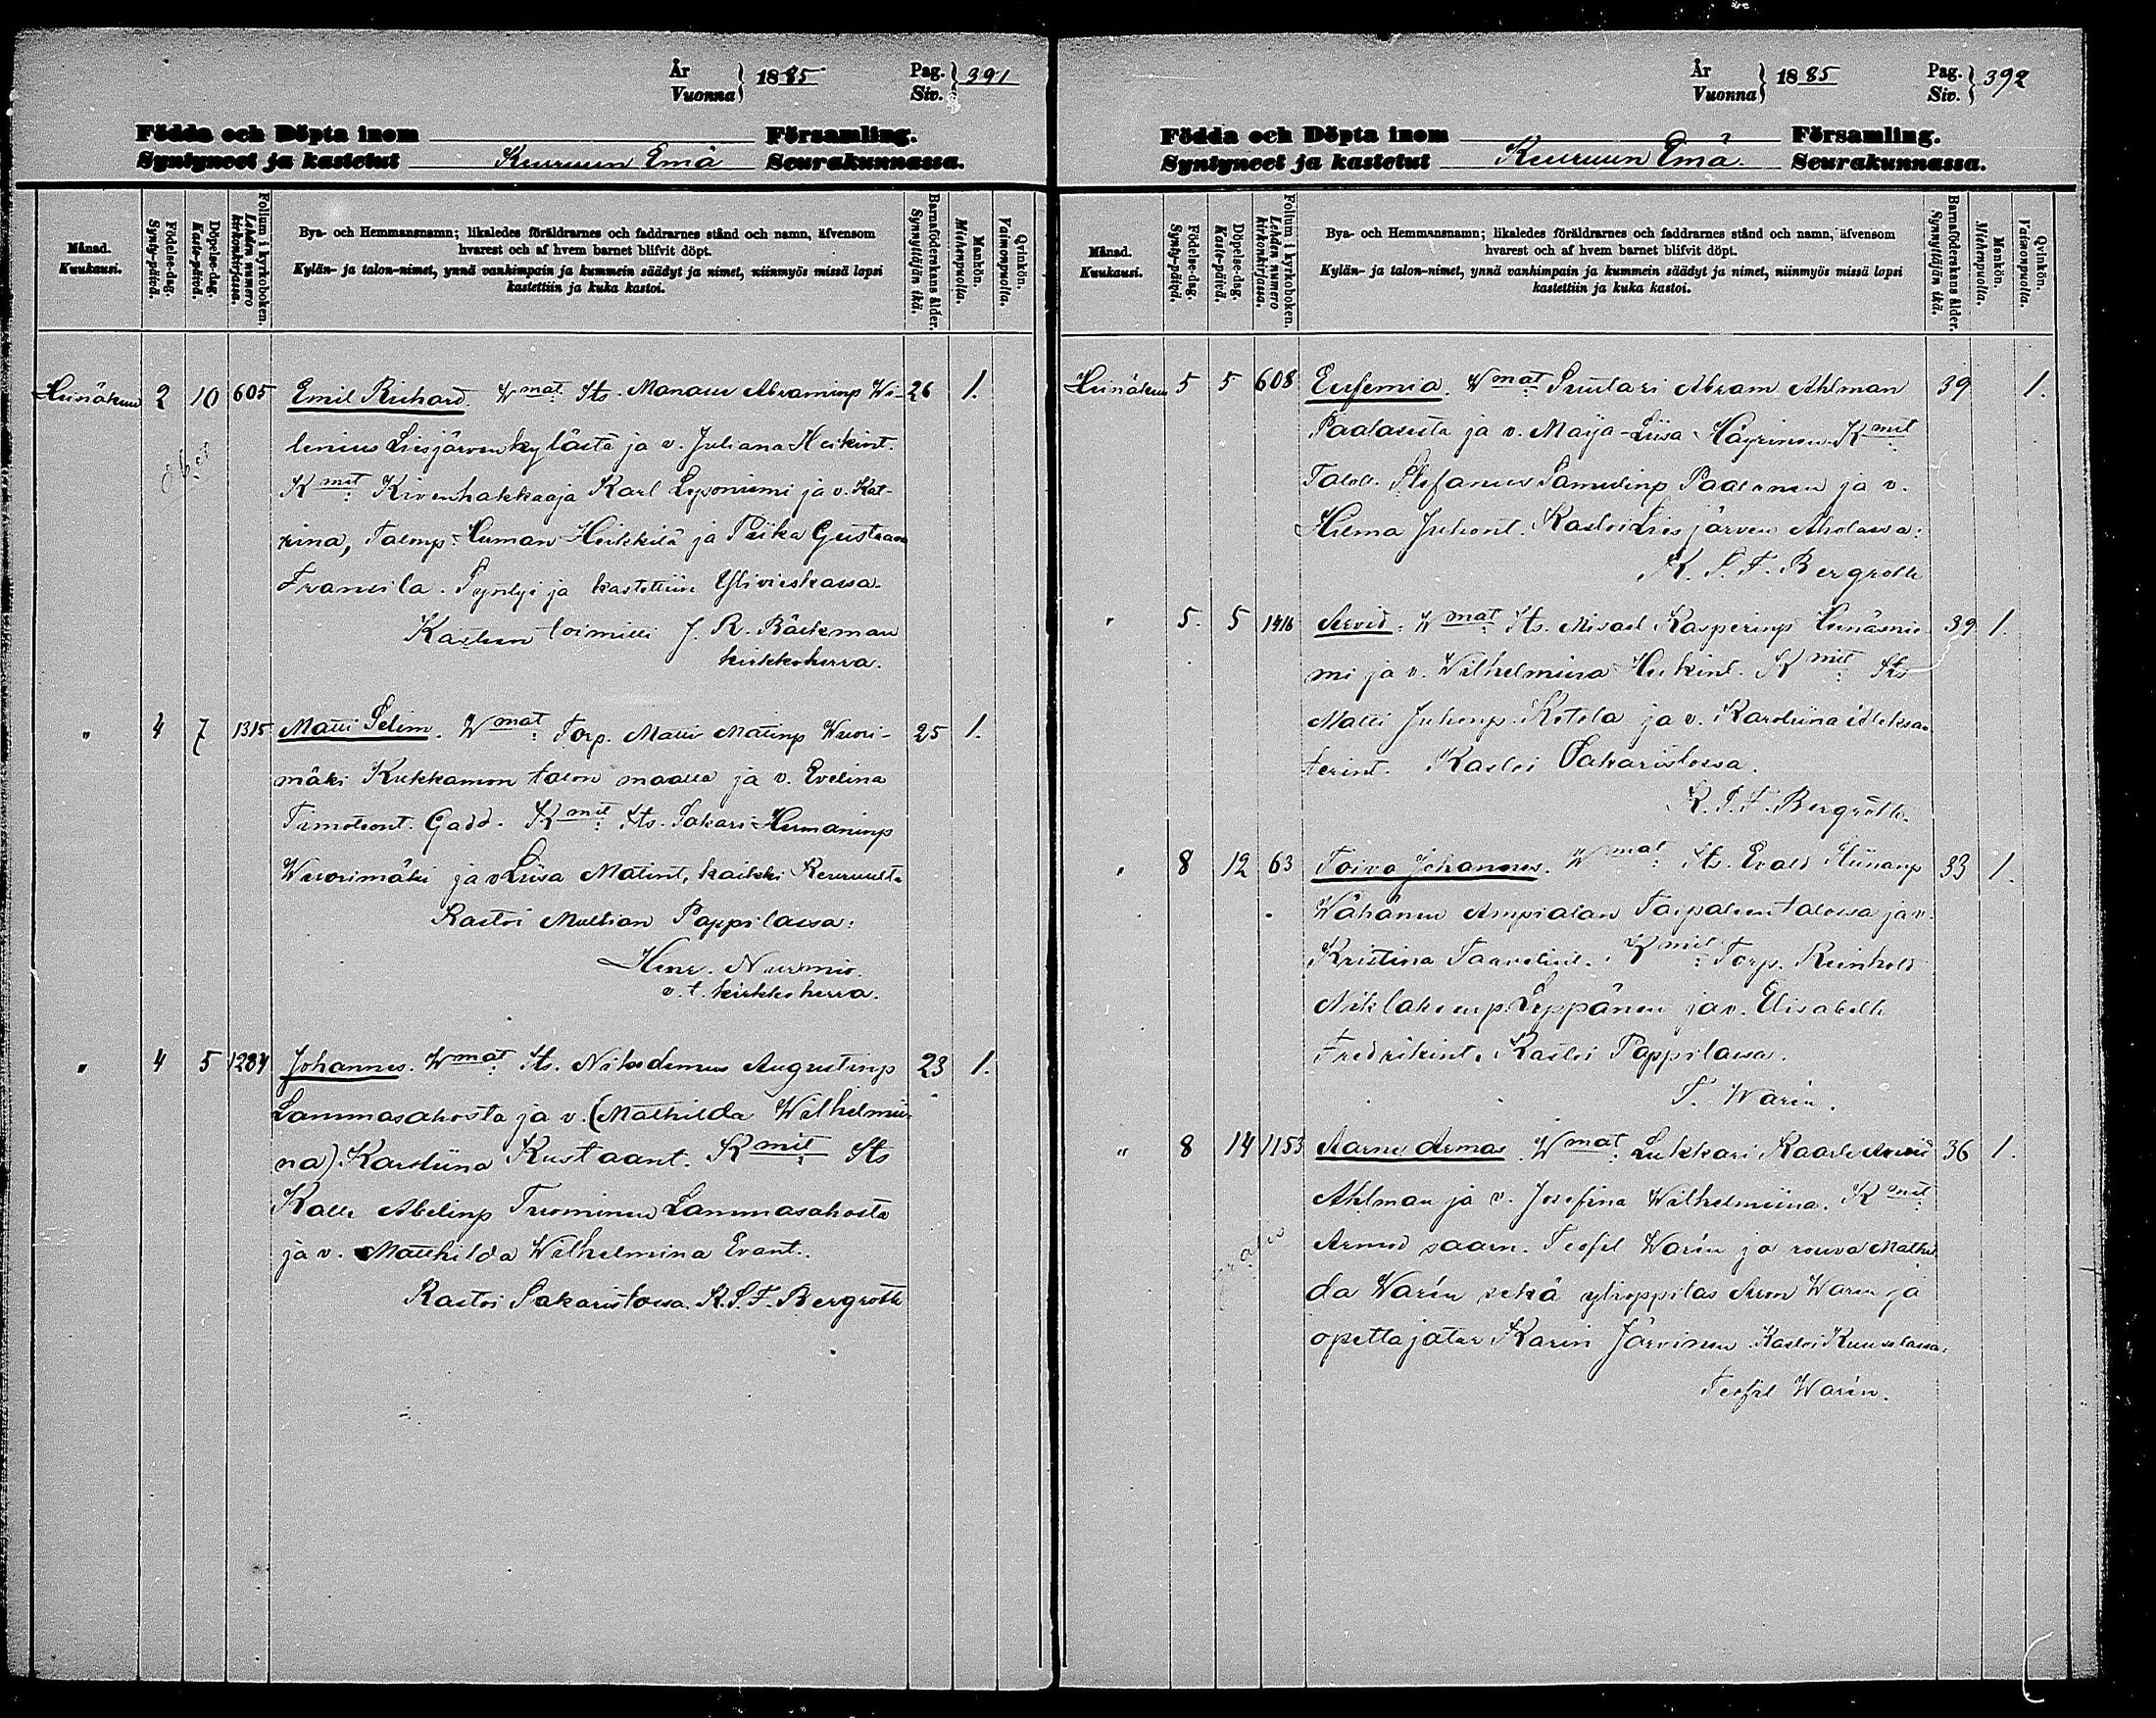 År
Vuonna } 1885 Pag.
Siv. } 391
Födda och Döpta inom Församling.
Syntyneet ja kastetut Keuruun Emä Seurakunnassa.
Månad.
Kuukausi.
Födelse-dag.
Synty-päivä.
Döpelse-dag.
Kaste-päivä.
Folium i kyrkoboken.
Lehden numero
kirkonkirjassa.
Bya- och Hemmansnamn; likaledes föräldrarnes och faddrarnes stånd och namn, äfvensom
hvarest och af hvem barnet blifvit döpt.
Kylän- ja talon-nimet, ynnä vanhimpain ja kummein säädyt ja nimet, niinmyös missä lapsi
kastettiin ja kuka kastoi.
Barnaföderskans ålder.
Synnyttäjän ikä.
Mankön.
Miehenpuolia.
Qvinkön.
Vaimonpuolia.
Heinäkuu 2 10 605 Emil Richard. Wmat. Its. Manasse Abraminp Wi- 26 1.
lenius Liesjärven kylästä ja v. Juliana Heikint.
Kmit Kivenhakkaaja Karl Leponiemi ja v. Kat-
rina, Talonp. Herman Heikkilä ja Piika Gustaava
Fransila. Syntyi ja kastettiin Ylivieskassa.
Kasteen toimitti J. R. Bäckman
kirkkoherra.
" 4 7 1315 Matti Selim. Wmat. Torp. Matti Matinp Wuori- 25 1.
mäki Kukkamon talon maalla ja v. Evelina
Timoteont. Gadd. Kmit. Its. Sakari Hermaninp
Wuorimäki ja v Liisa Matint, kaikki Keuruulta
Kastoi Multian Pappilassa:
Henr. Nurmio.
v. t. kirkkoherra.
" 4 5 1284 Johannes. Wmat. Its. Nikodemus Augustinp 23 1.
Lammasahosta ja v. (Mathilda Wilhelmii-
na). Karoliina Kustaant. Kmit. Its
Kalle Abelinp Tuominen Lammasahosta
ja v. Matthilda Wilhelmina Evant.
Kastoi Sakaristossa. K. S. F. Bergroth
År
Vuonna } 1885 Pag.
Siv. } 392
Födda och Döpta inom Församling.
Syntyneet ja kastetut Keuruun Emä Seurakunnassa.
Månad.
Kuukausi.
Födelse-dag.
Synty-päivä.
Döpelse-dag.
Kaste-päivä.
Folium i kyrkoboken.
Lehden numero
kirkonkirjassa.
Bya- och Hemmansnamn; likaledes föräldrarnes och faddrarnes stånd och namn, äfvensom
hvarest och af hvem barnet blifvit döpt.
Kylän- ja talon-nimet, ynnä vanhimpain ja kummein säädyt ja nimet, niinmyös missä lapsi
kastettiin ja kuka kastoi.
Barnaföderskans ålder.
Synnyttäjän ikä.
Mankön.
Miehenpuolia.
Qvinkön.
Vaimonpuolia.
Heinäkuu 5 5 608 Eufemia. Wmat Suutari Abram Ahlman 39 1.
Paalasesta ja v. Maija-Liisa Häyrinen. Kmit
Talol. Stefanus Samulinp Paalanen ja v.
Hilma Juhont. Kastoi Liesjärven Aholassa:
K. S. F. Bergroth
" 5. 5 1416 Arvid. Wmat Its. Misael Kasperinp Heinäsnie- 39 1.
mi ja v. Wilhelmina Heikint. Kmit. Its
Matti Juhonp. Ketola ja v. Karoliina Aleksan
terint. Kastoi Sakaristossa.
K. S. F. Bergroth.
" 8 12 63 Toivo Johannes. Wmat. Its. Evald Stiinanp 33 1.
Wähänen Ampialan Taipaleen talossa ja v.
Kristina Taavetint. Kmit. Torp. Reinhold
Niklaksenp. Leppänen ja v. Elisabeth
Fredrikint. Kastoi Pappilassa.
T. Warén.
" 8 14 1153 Aarne Armas. Wmat. Lukkari Kaarle Arvid 36 1.
Ahlman ja v. Josefina Wilhelmiina. Kmit.
Armov. saarn. Teofil Warén ja rouva Mathil
da Warén sekä ylioppilas Aron Warén ja
opettajatar Karin Järvinen. Kastoi Kuuselassa.
Teofil Warén.